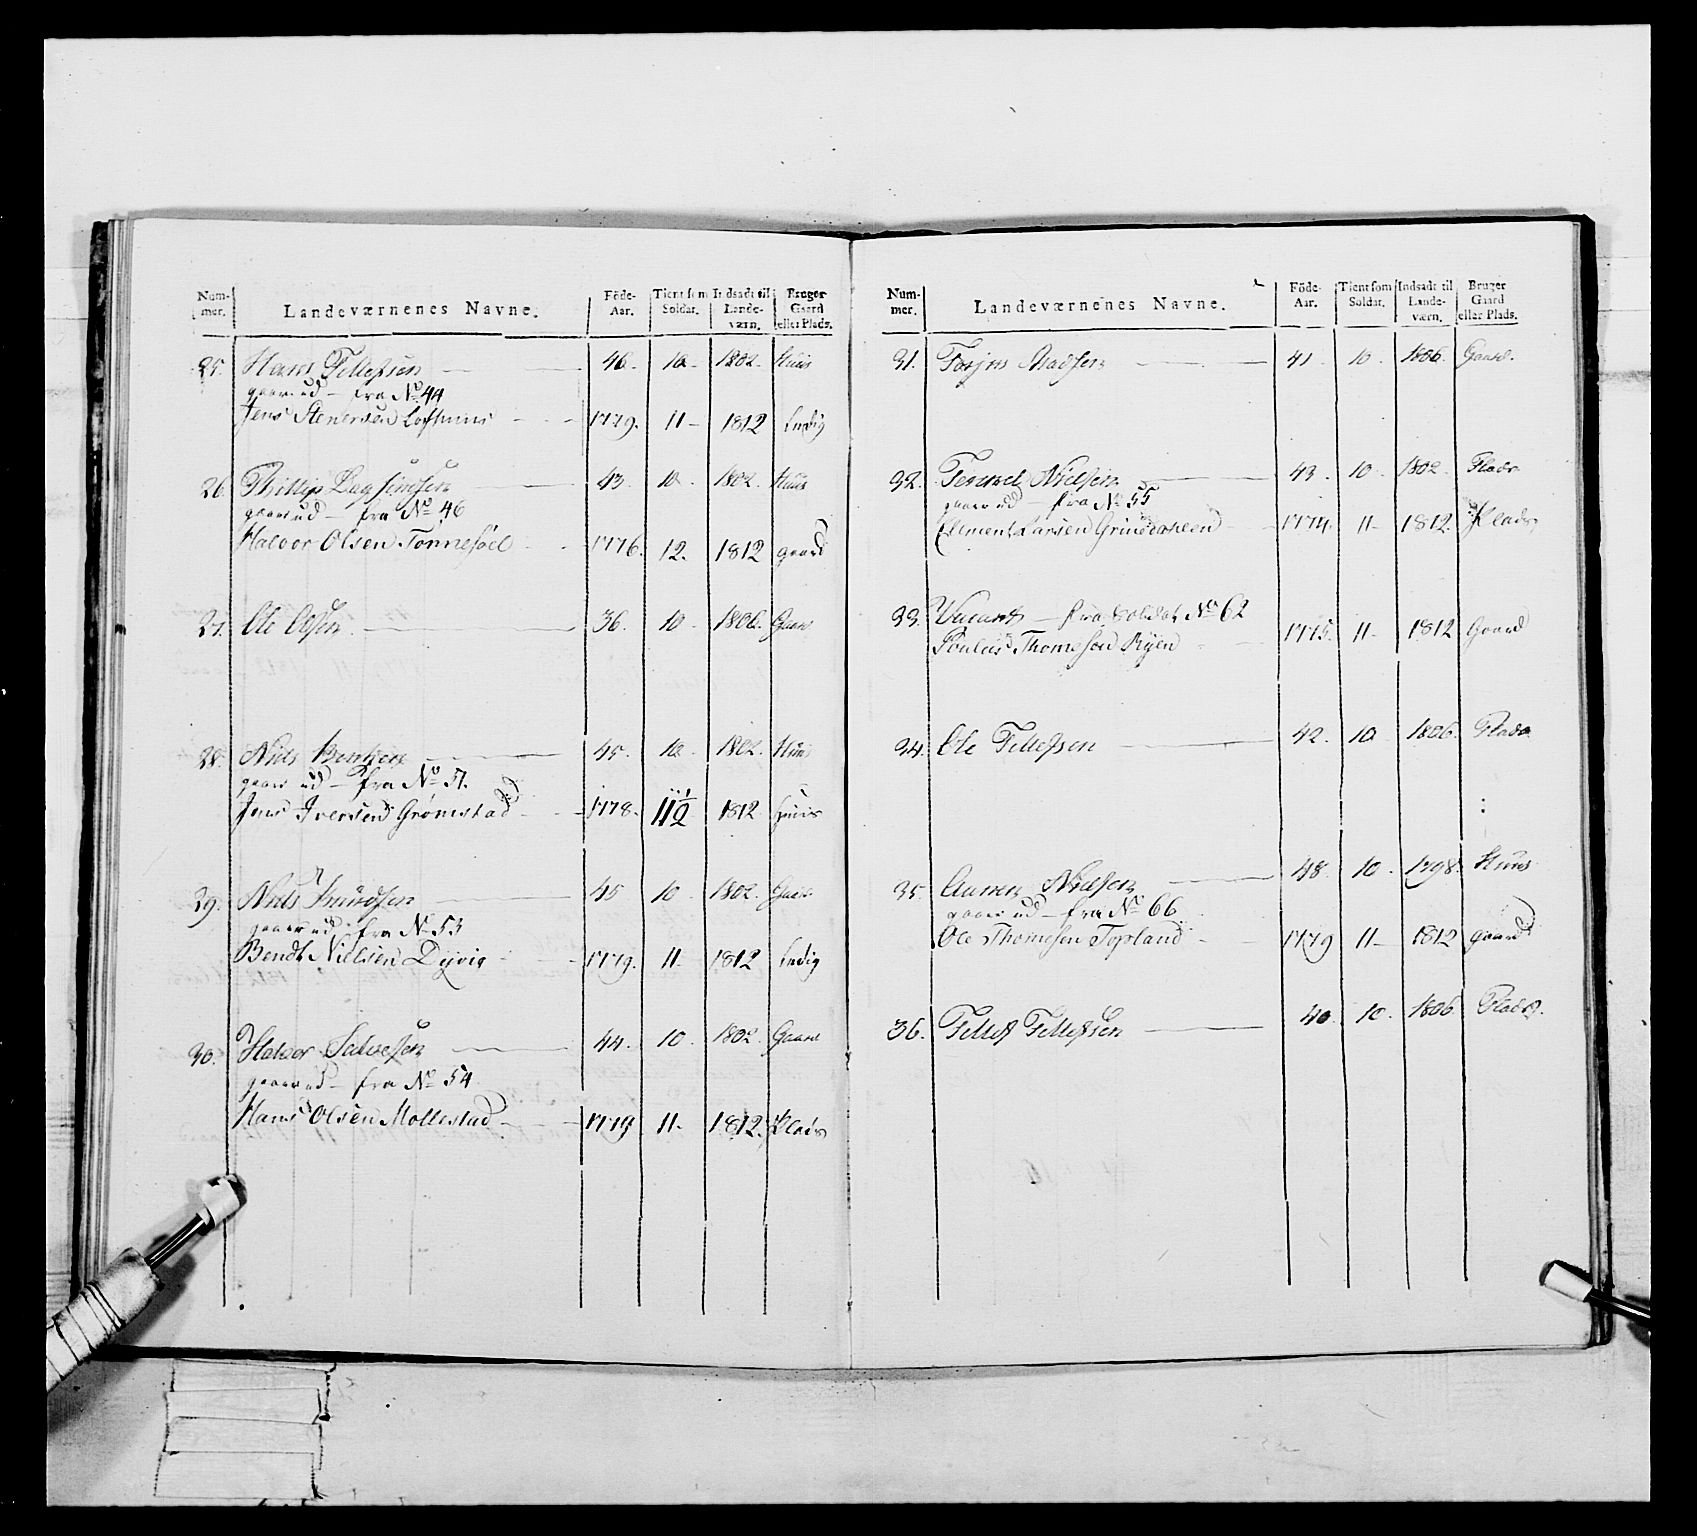 Num-mer. Landeværnenes Navne. Föde-Aar. Tient som Soldat. Indsadt til Lande-værn. Bruger Gaard eller Plads.
25. Hans Tellefsen 46. 10 1802. Huus
gaaer ud – fra No. 44
Jens Stenersen 1779. 11 – 1812 Ledig
26. Phillip 43. 10. 1802. Huus
gaaer ud – fra No 46
Halvor Olsen Tønnesöel 1776. 12. 1812 gaard
27. Ole Olsen 36. 10 1806. Gaard
28. Niels 45. 10 1802. Huus
gaaer ud – fra No. 51.
Jens Iversen Grømstad 1778. 11 1/2 1812 Huus
29. Niels Knudsen 45 10 1802. Gaard
gaaer ud – fra No 53
Bendt Nielsen Dyvig 1779. 11 – 1812 Ledig
30. Halvor Salvesen 44. 10 1802. Gaard
gaaer ud – fra No 54
Hans Olsen Mollestad 1779 11 – 1812. Plads
Num-mer. Landeværnenes Navne. Föde-Aar. Tient som Soldat. Indsadt til Lande-værn. Bruger Gaard eller Plads.
31. Madsen 41. 10. 1806. Gaard.
32. Nielsen 43. 10 1802. Plads
gaaer ud – fra No 55
Clement Larsen 1774. 11 – 1812. Plads
33. Vacant – fra Soldat No 62
Poulus Thomesen Ryen 1775. 11 – 1812 Gaard
34. Ole Tellefsen 42. 10 1806. Plads
35. Nielsen 48. 10. 1798. Huus
gaaer ud – fra No 66
Ole Thomesen Topland 1779 11 – 1812 gaard
36. Tellef Tellefsen 40. 10. 1806. Plads.